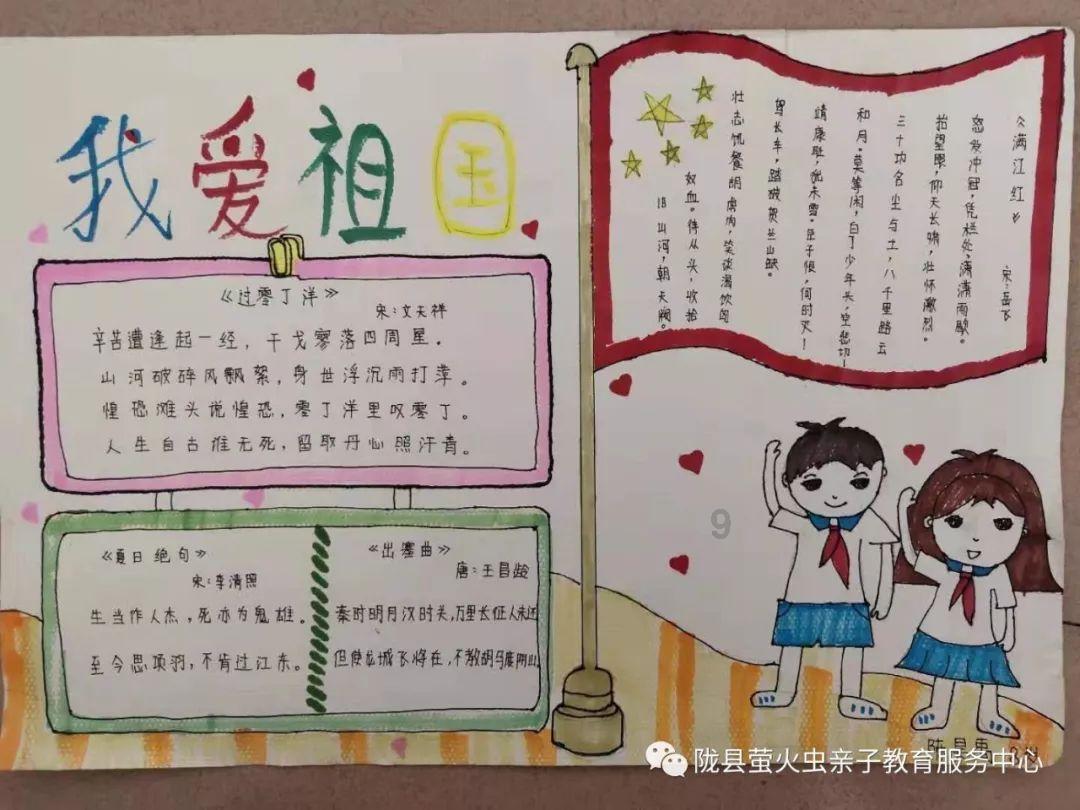 我爱祖国
《过零丁洋》
宋:文天祥
辛苦遭逢起一经,干戈寥落四周星。
山河破碎风飘絮,身世浮沉雨打萍。
惶恐滩头说惶恐,零丁洋里叹零丁。
人生自古谁无死,留取丹心照汗青。
《夏日绝句》
宋:李清照
生当作人杰,死亦为鬼雄。
至今思项羽,不肯过江东。
《出塞曲》
唐:王昌龄
秦时明月汉时关,万里长征人未还
但使龙城飞将在,不教胡马度阴山。
《满江红》
宋:岳飞
怒发冲冠,凭栏处,潇潇雨歇。
抬望眼,仰天长啸,壮怀激烈。
三十功名尘与土,八千里路云
和月。莫等闲,白了少年头,空悲切!
靖康耻,犹未雪。臣子恨,何时灭!
驾长车,踏破贺兰山缺。
壮志饥餐胡虏肉,笑谈渴饮匈
奴血。待从头,收拾
旧山河,朝天阙。
9
陇县萤火虫亲子教育服务中心